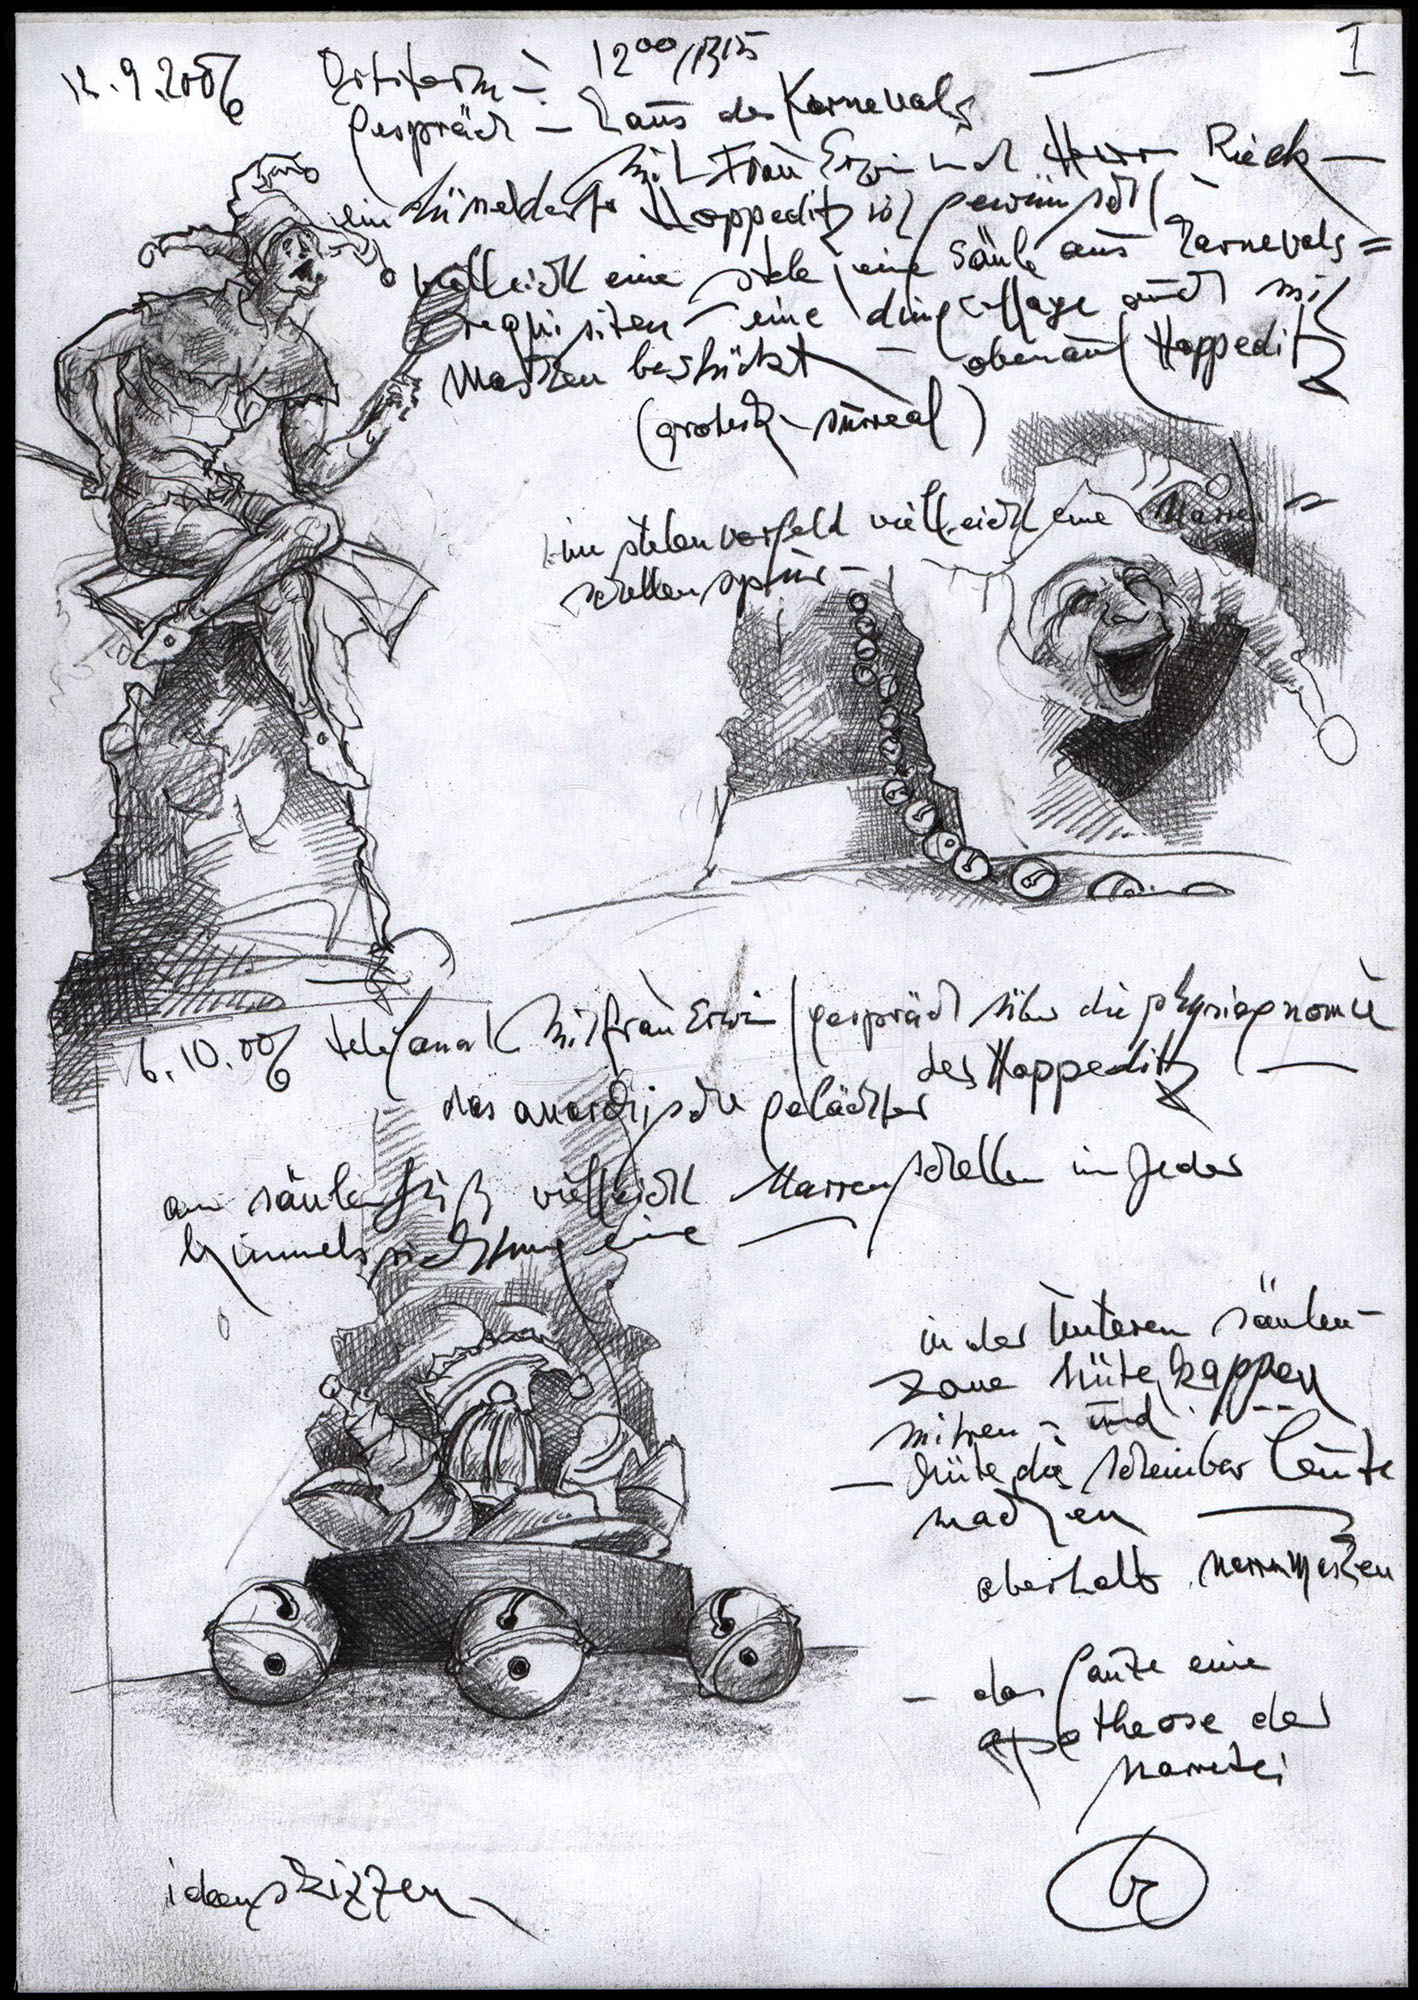 I
12.9.2006 Ortstermin – 12⁰⁰/13¹⁵
Gespräch – Haus des Karnevals
mit Frau Erwin und Herrn Rieck –
ein düsseldorfer Hoppeditz ist gewünscht
vielleicht eine stele, eine säule aus karnevals=
requisiten – eine dingcollage auch mit
Masken bestückt – obenauf Hoppeditz
(grotesk – surreal)
im stelenvorfeld vielleicht eine Narren =
schellenspur –
6.10.006 telefonat mit frau Erwin / gespräch über die physiognomie
des Hoppeditz –
das anarchische gelächter
am säulenfuß vielleicht Narrenschellen in jeder
himmelsrichtung eine –
in der unteren säulen–
zone hüte, kappen
mitren – und
– hüte die scheinbar leute
machen –
oberhalb narrenmasken
– das ganze eine
apotheose der
narretei
ideenskizzen